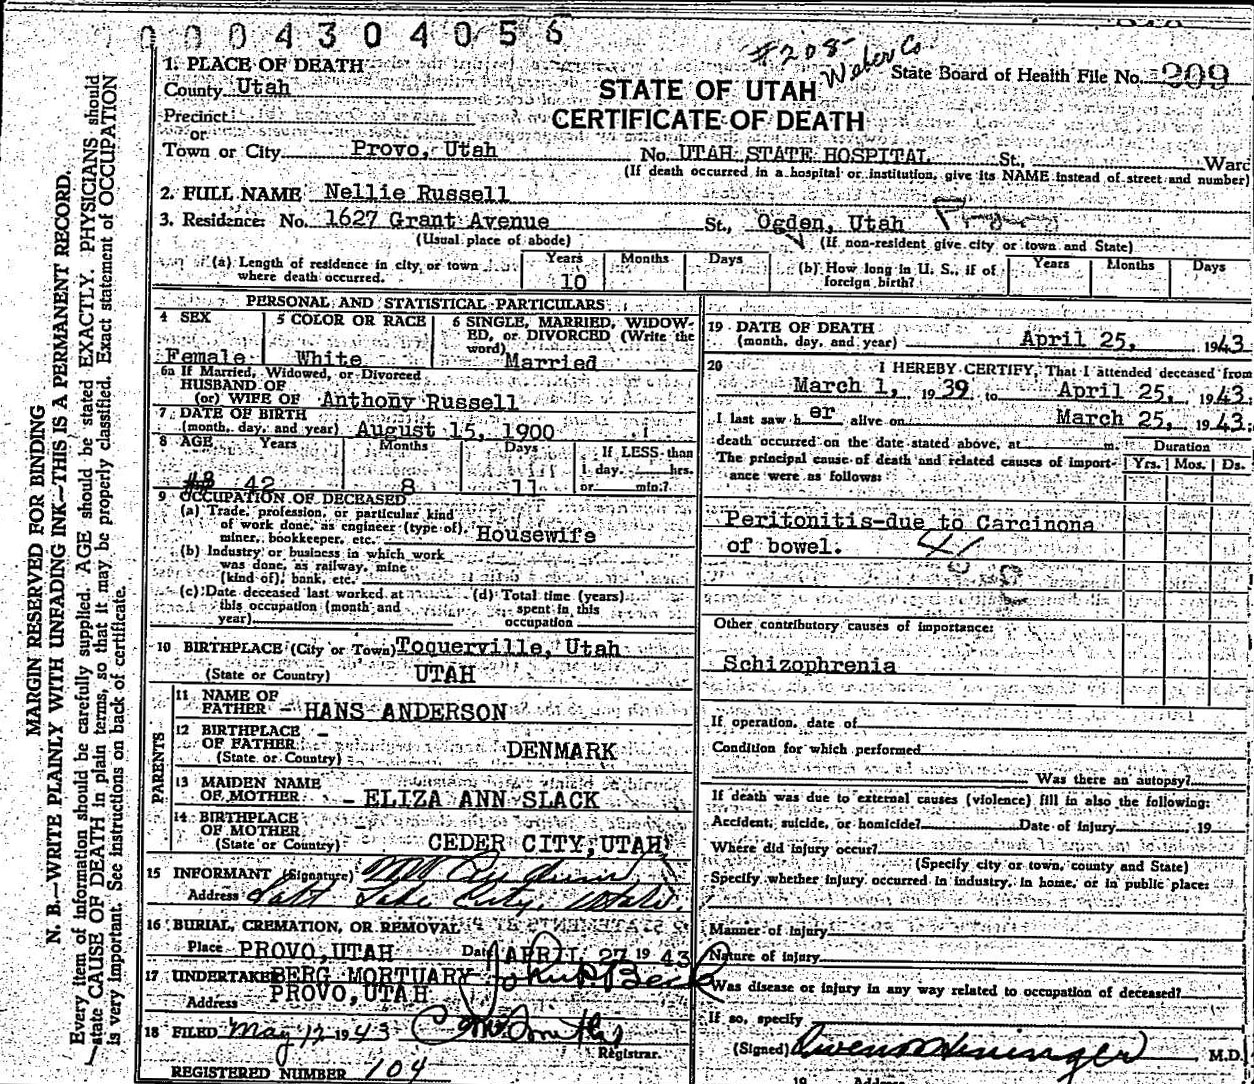 0004304056
#208 Weber Co
State Board of Health File No. 209
STATE OF UTAH
CERTIFICATE OF DEATH
MARGIN RESERVED FOR BINDING
N. B.—WRITE PLAINLY WITH UNFADING INK—THIS IS A PERMANENT RECORD.
Every item of information should be carefully supplied. AGE should be stated EXACTLY. PHYSICIANS should
—state CAUSE OF DEATH in plain terms, so that it may be properly classified. Exact statement of OCCUPATION
is very important. See instructions on back of certificate.
1. PLACE OF DEATH
County Utah
Precinct
or
Town or City Provo, Utah No. UTAH STATE HOSPITAL St., Ward
(If death occurred in a hospital or institution, give its NAME instead of street and number)
2. FULL NAME Nellie Russell
3. Residence: No. 1627 Grant Avenue St., Ogden, Utah
(Usual place of abode) (If non-resident give city or town and State)
(a) Length of residence in city, or town where death occurred. Years 10 Months Days
(b) How long in U. S., if of foreign birth? Years Months Days
PERSONAL AND STATISTICAL PARTICULARS
4 SEX Female
5 COLOR OR RACE White
6 SINGLE, MARRIED, WIDOW-
ED, or DIVORCED (Write the
word) Married
6a If Married, Widowed, or Divorced
HUSBAND OF
(or) WIFE OF Anthony Russell
7 DATE OF BIRTH
(month, day, and year) August 15, 1900
8 AGE Years 42 Months 8 Days 11
If LESS than
1 day, hrs.
or min.?
9 OCCUPATION OF DECEASED
(a) Trade, profession, or particular kind
of work done, as engineer (type of),
miner, bookkeeper, etc. Housewife
(b) Industry or business in which work
was done, as railway, mine
(kind of), bank, etc.
(c) Date deceased last worked at
this occupation (month and
year)
(d) Total time (years)
spent in this
occupation
10 BIRTHPLACE (City or Town) Toquerville, Utah
(State or Country) UTAH
PARENTS
11 NAME OF
FATHER - HANS ANDERSON
12 BIRTHPLACE -
OF FATHER
(State or Country) DENMARK
13 MAIDEN NAME
OF MOTHER - ELIZA ANN SLACK
14 BIRTHPLACE -
OF MOTHER
(State or Country) CEDER CITY, UTAH
15 INFORMANT (Signature)
Address Salt Lake City, Utah.
16 BURIAL, CREMATION, OR REMOVAL
Place PROVO, UTAH Date APRIL 27 19 43
17 UNDERTAKER BERG MORTUARY John P. Beck
Address PROVO, UTAH
18 FILED May 12 1943
Registrar.
REGISTERED NUMBER 104
19 DATE OF DEATH
(month, day, and year) April 25, 1943
20 I HEREBY CERTIFY, That I attended deceased from
March 1, 1939 to April 25, 1943.
I last saw her alive on March 25, 1943:
death occurred on the date stated above, at m.
The principal cause of death and related causes of import-
ance were as follows:
Duration
Yrs. Mos. Ds.
Peritonitis-due to Carcinona
of bowel.
Other contributory causes of importance:
Schizophrenia
If operation, date of
Condition for which performed
Was there an autopsy?
If death was due to external causes (violence) fill in also the following:
Accident, suicide, or homicide? Date of injury 19
Where did injury occur?
(Specify city or town, county and State)
Specify whether injury occurred in industry, in home, or in public place:
Manner of injury
Nature of injury
Was disease or injury in any way related to occupation of deceased?
If so, specify
(Signed) Owen Heninger M.D.
19 Address